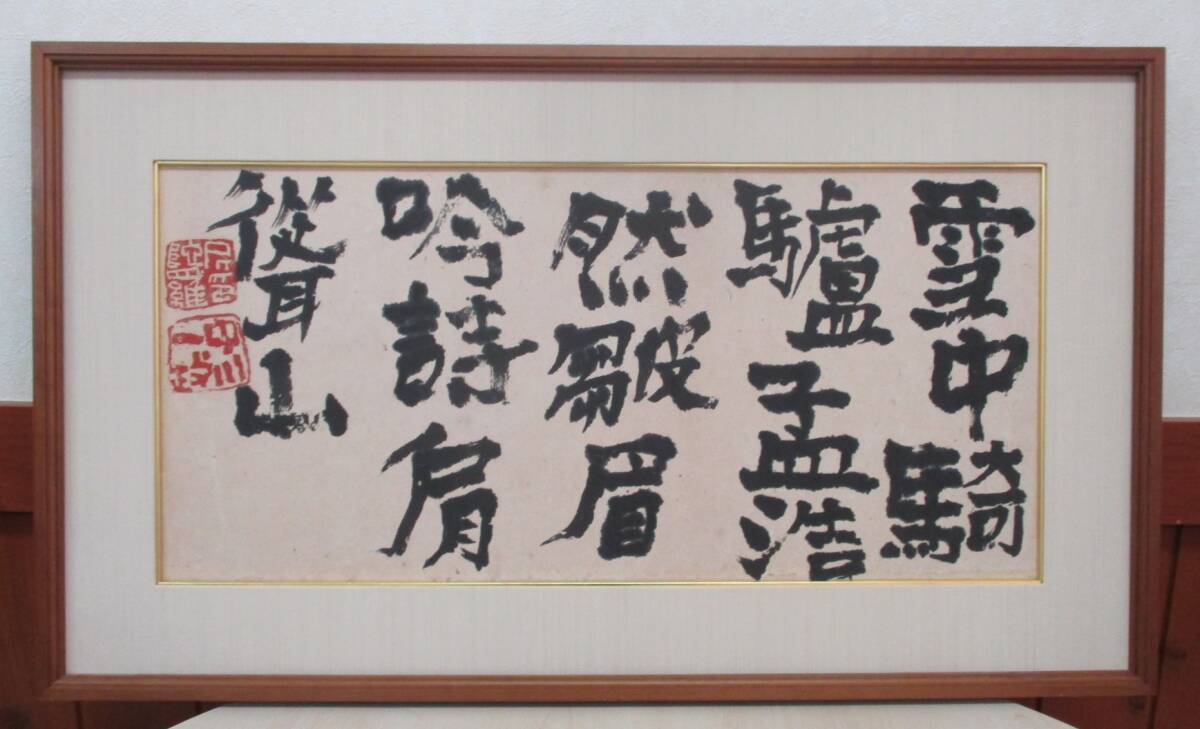 雪中騎
驢孟浩
然皺眉
吟詩肩
聳山
中川
一政